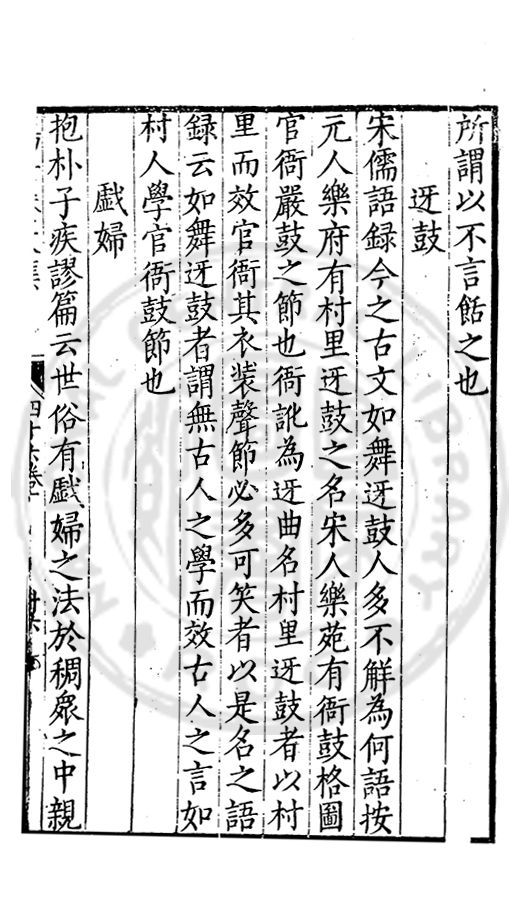 所謂以不言餂之也
迓鼓
宋儒語録今之古文如舞迓鼓人多不解為何語按
元人樂府有村里迓鼓之名宋人樂苑有衙鼓格圖
官衙嚴鼓之節也衙訛為迓曲名村里迓鼓者以村
里而效官衙其衣装聲節必多可笑者以是名之語
録云如舞迓鼓者謂無古人之學而效古人之言如
村人學官衙鼓節也
戲婦
抱朴子疾謬篇云世俗有戲婦之法於稠衆之中親
四十六卷